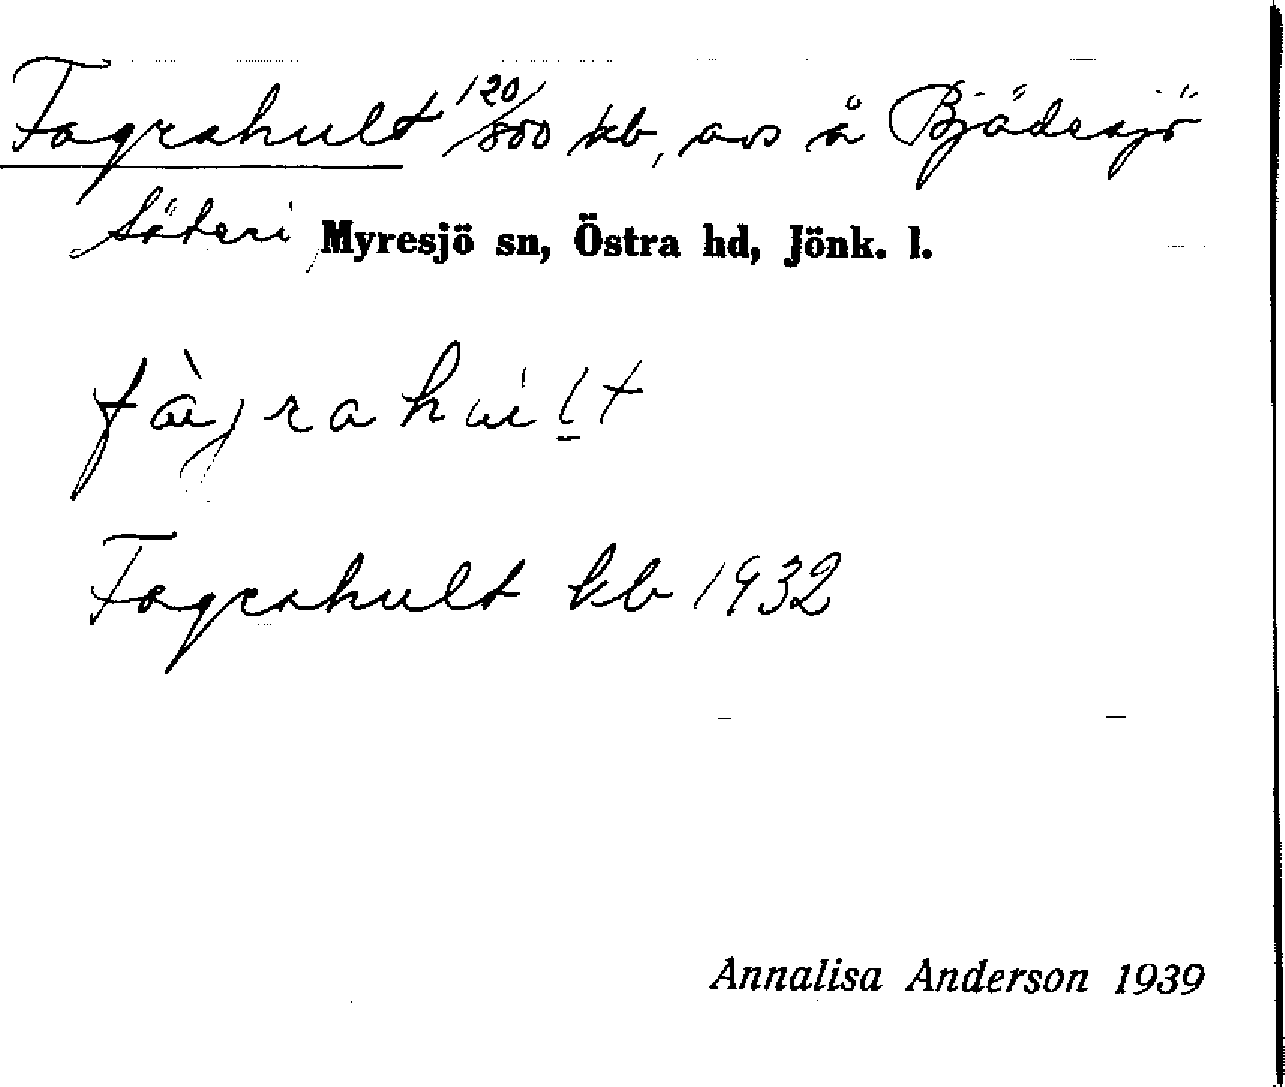 Fagrahult 120/800 kb, avs å Bjädesjö
Säteri Myresjö sn, Östra hd, Jönk. l.
fàgrahult
Fagrahult kb 1932
Annalisa Anderson 1939